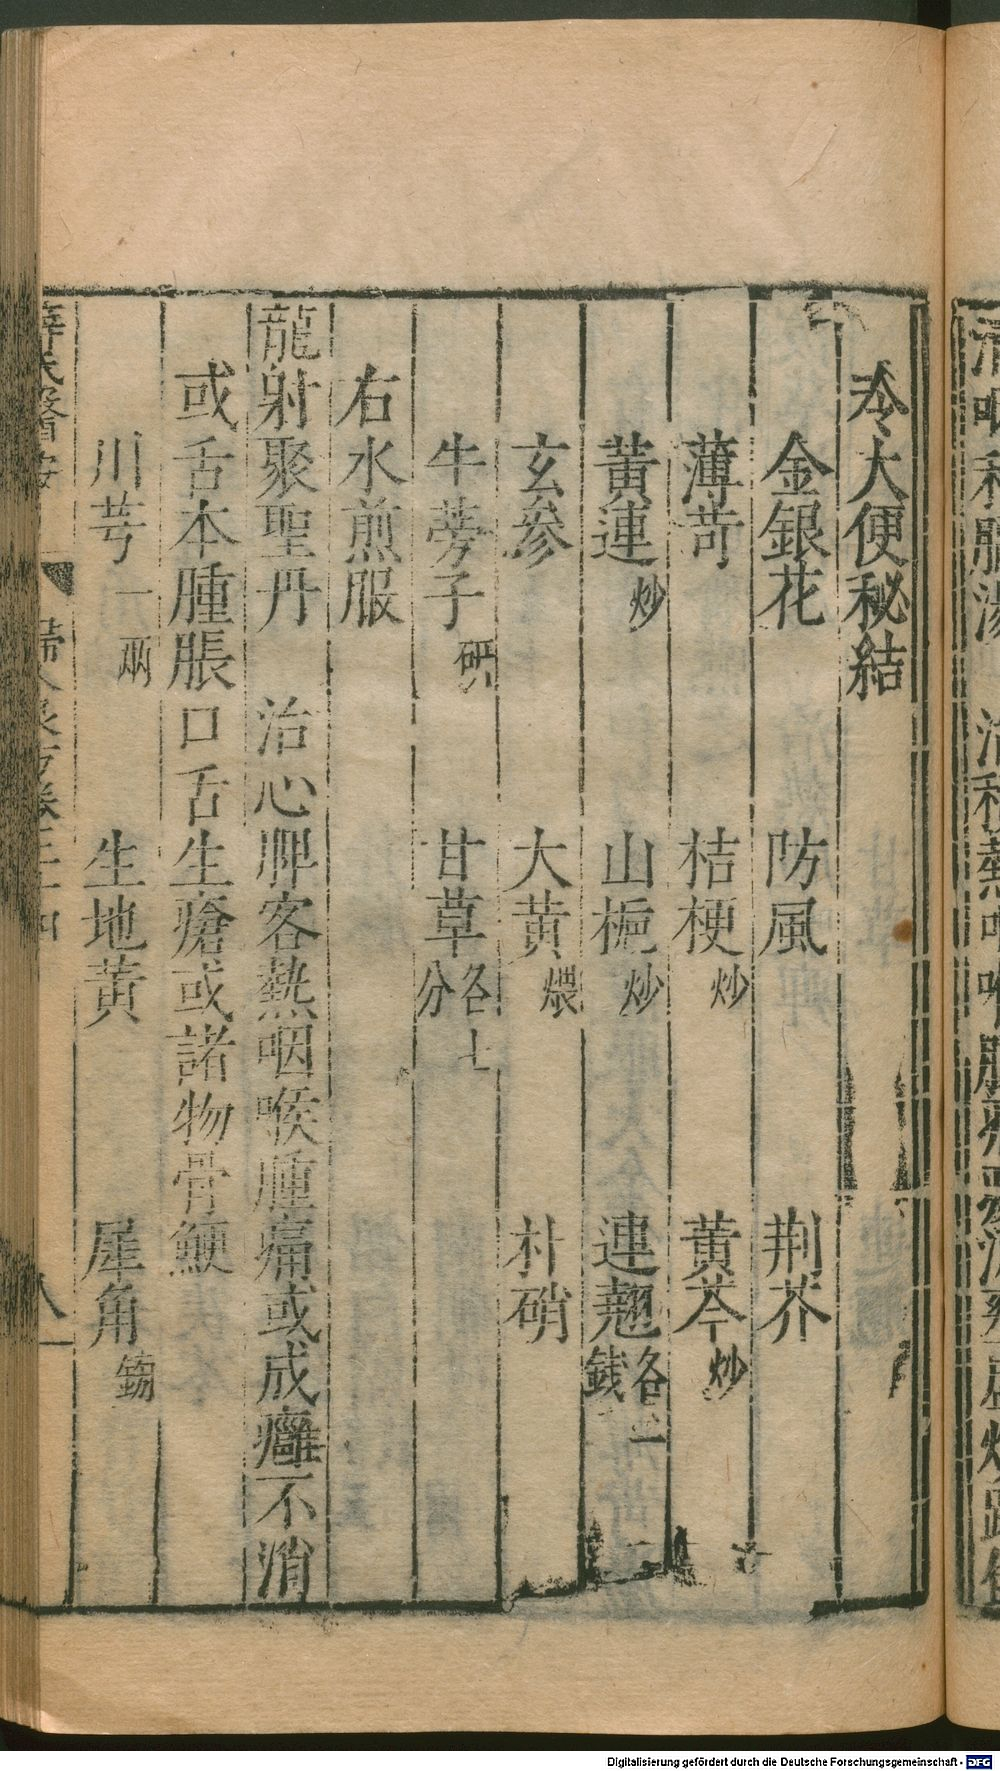 冷大便秘結
金銀花　防風　荆芥
薄苛　桔梗炒　黄芩炒
黄連炒　山梔炒　連翹各一錢
玄參　大黄煨　朴硝
牛蒡子研　甘草各七分
右水煎服
龍射聚聖丹　治心脾客熱咽喉腫痛或成癰不消
或舌本腫脹口舌生瘡或諸物骨鯁
川芎一兩　生地黄　犀角鎊
薛氏醫按　婦人良方卷二十四　八
Digitalisierung gefördert durch die Deutsche Forschungsgemeinschaft - DFG